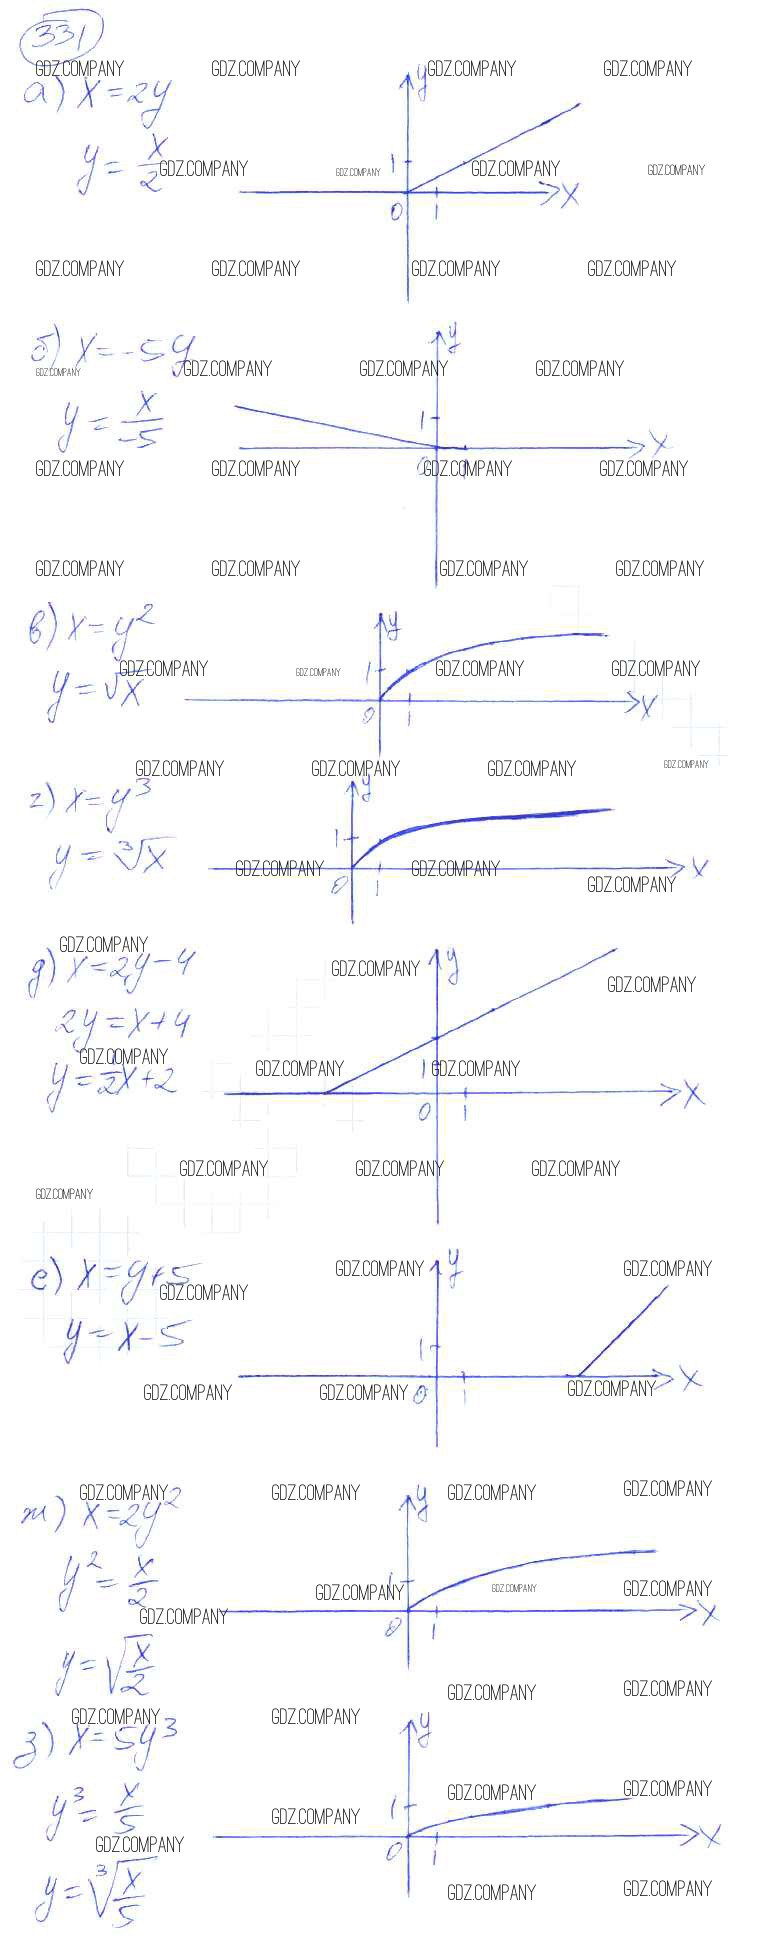 331
GDZ.COMPANY GDZ.COMPANY GDZ.COMPANY GDZ.COMPANY
а) x=2y y
y = x/2 1
GDZ.COMPANY GDZ.COMPANY GDZ.COMPANY GDZ.COMPANY
0 1 x
GDZ.COMPANY GDZ.COMPANY GDZ.COMPANY GDZ.COMPANY
б) x=-5y y
GDZ.COMPANY GDZ.COMPANY GDZ.COMPANY GDZ.COMPANY
y = x/-5 1 x
GDZ.COMPANY GDZ.COMPANY 0 GDZ.COMPANY 1 GDZ.COMPANY
GDZ.COMPANY GDZ.COMPANY GDZ.COMPANY GDZ.COMPANY
в) x=y² y
GDZ.COMPANY GDZ.COMPANY 1 GDZ.COMPANY GDZ.COMPANY
y=√x 0 1 x
GDZ.COMPANY GDZ.COMPANY GDZ.COMPANY GDZ.COMPANY
г) x=y³ y
y=∛x 1
GDZ.COMPANY GDZ.COMPANY x
0 1 GDZ.COMPANY
GDZ.COMPANY
д) x=2y-4 GDZ.COMPANY y
GDZ.COMPANY
2y=x+4
GDZ.COMPANY GDZ.COMPANY 1 GDZ.COMPANY
y=1/2x+2 x
0 1
GDZ.COMPANY GDZ.COMPANY GDZ.COMPANY
GDZ.COMPANY
е) x=y+5 GDZ.COMPANY y GDZ.COMPANY
GDZ.COMPANY
y=x-5 1
x
GDZ.COMPANY GDZ.COMPANY 0 1 GDZ.COMPANY
GDZ.COMPANY GDZ.COMPANY GDZ.COMPANY GDZ.COMPANY
ж) x=2y² y
y²=x/2 1
GDZ.COMPANY GDZ.COMPANY GDZ.COMPANY
GDZ.COMPANY x
0 1
y=√x/2
GDZ.COMPANY GDZ.COMPANY
GDZ.COMPANY GDZ.COMPANY
з) x=5y³ y
y³=x/5 GDZ.COMPANY GDZ.COMPANY
GDZ.COMPANY 1
GDZ.COMPANY 0 1 x
y=∛x/5
GDZ.COMPANY GDZ.COMPANY